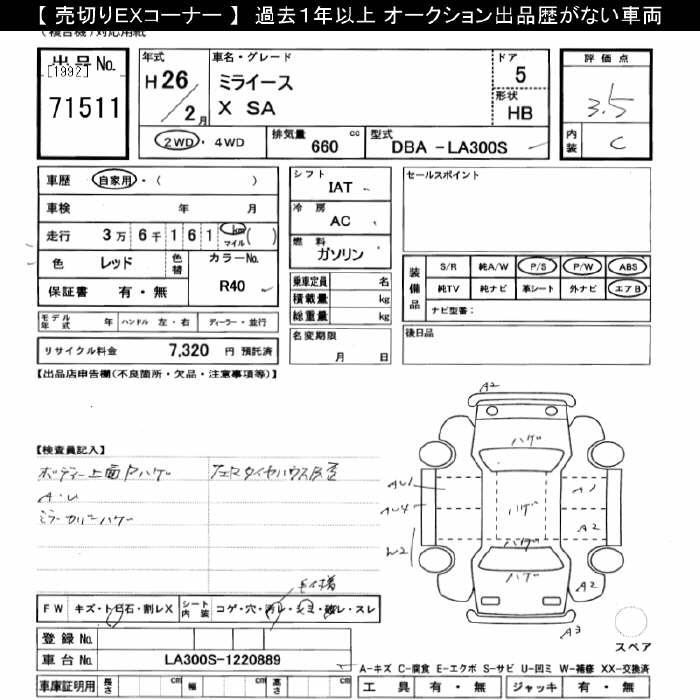 【 売切りEXコーナー 】 過去１年以上 オークション出品歴がない車両
(複合機)対応用紙
出品No.
[1992]
71511
年式
H 26
2 月
車名・グレード
ミライース
X SA
ドア
5
形状
HB
評価点
3.5
内装
C
2WD ・ 4WD
排気量
660 cc
型式
DBA -LA300S
車歴
自家用 ・ ( )
車検 年 月
走行 3万 6千 1 6 1 km マイル ( )
色
レッド
色替
カラーNo.
R40
保証書 有・無
シフト
IAT
冷房
AC
燃料
ガソリン
乗車定員 名
積載量 kg
総重量 kg
名変期限
月 日
セールスポイント
装備品
S/R 純A/W P/S P/W ABS
純TV 純ナビ 革シート 外ナビ エアB
ナビ型番：
後日品
モデル年式 年 ハンドル 左・右 ディーラー・並行
リサイクル料金 7,320 円 預託済
【出品店申告欄(不良箇所・欠品・注意事項等)】
【検査員記入】
ボディー上面Pハゲ
A・U
ミラーカバーハゲ
FW キズ・ト日石・割レX シート内装 コゲ・穴・汚レ・シミ・破レ・スレ
登録 No.
車台 No. LA300S-1220889
車庫証明用 長さ cm 幅 cm 高さ cm
A2
ハゲ
AU1
AU4
A1
A2
ハゲ
ハゲ
ハゲ
A2
A3
スペア
A-キズ C-腐食 E-エクボ S-サビ U-凹ミ W-補修 XX-交換済
工具 有・無 ジャッキ 有・無